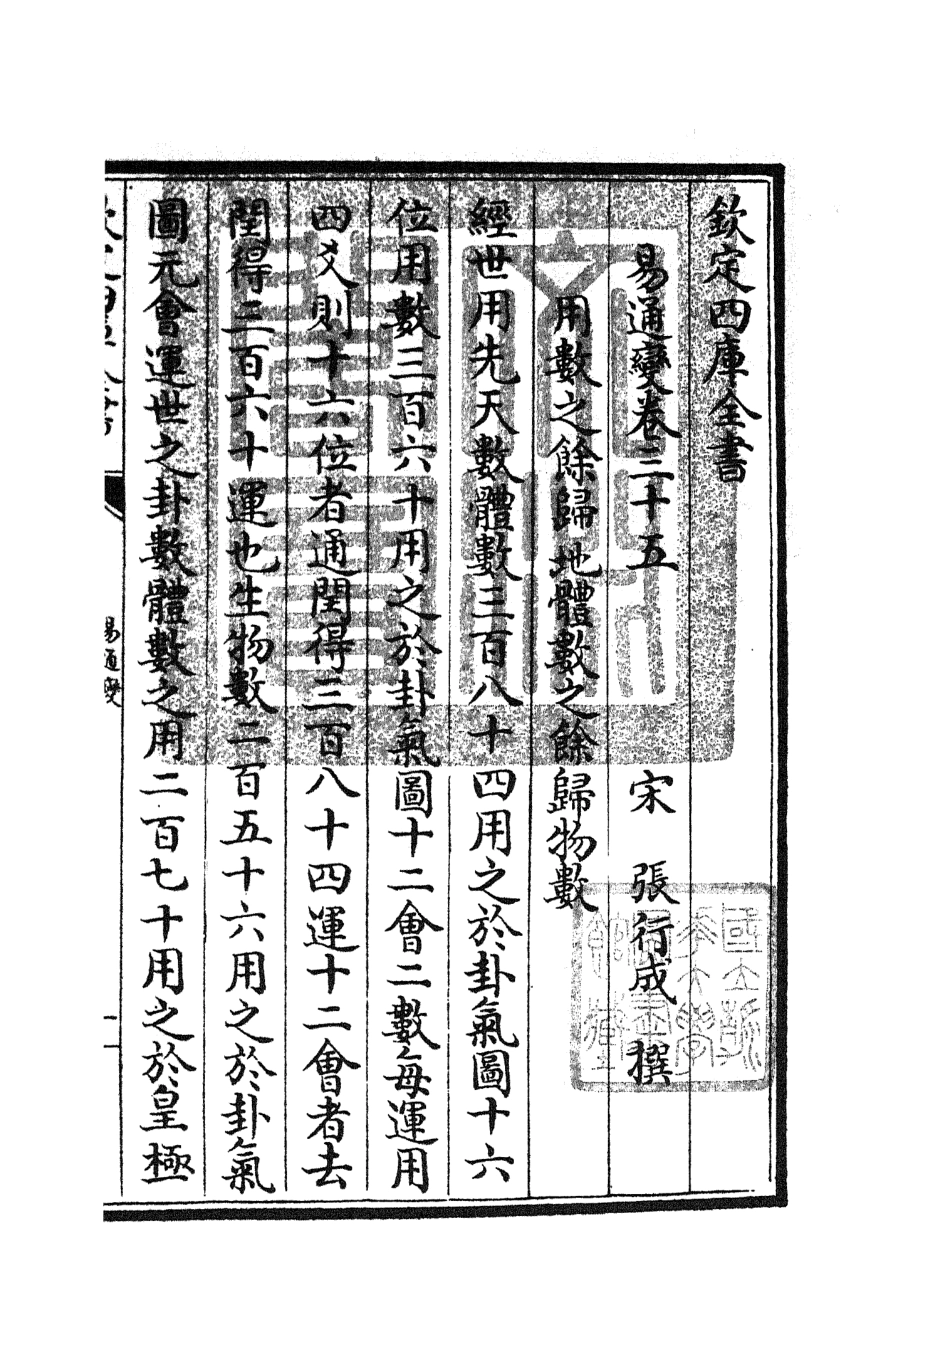 欽定四庫全書
易通變卷三十五　宋　張行成　撰
用數之餘歸地體數之餘歸物數
經世用先天數體數三百八十四用之於卦氣圖十六
位用數三百六十用之於卦氣圖十二會二數每運用
四爻則十六位者通閏得三百八十四運十二會者去
閏得三百六十運也生物數二百五十六用之於卦氣
圖元會運世之卦數體數之用二百七十用之於皇極
易通變
一